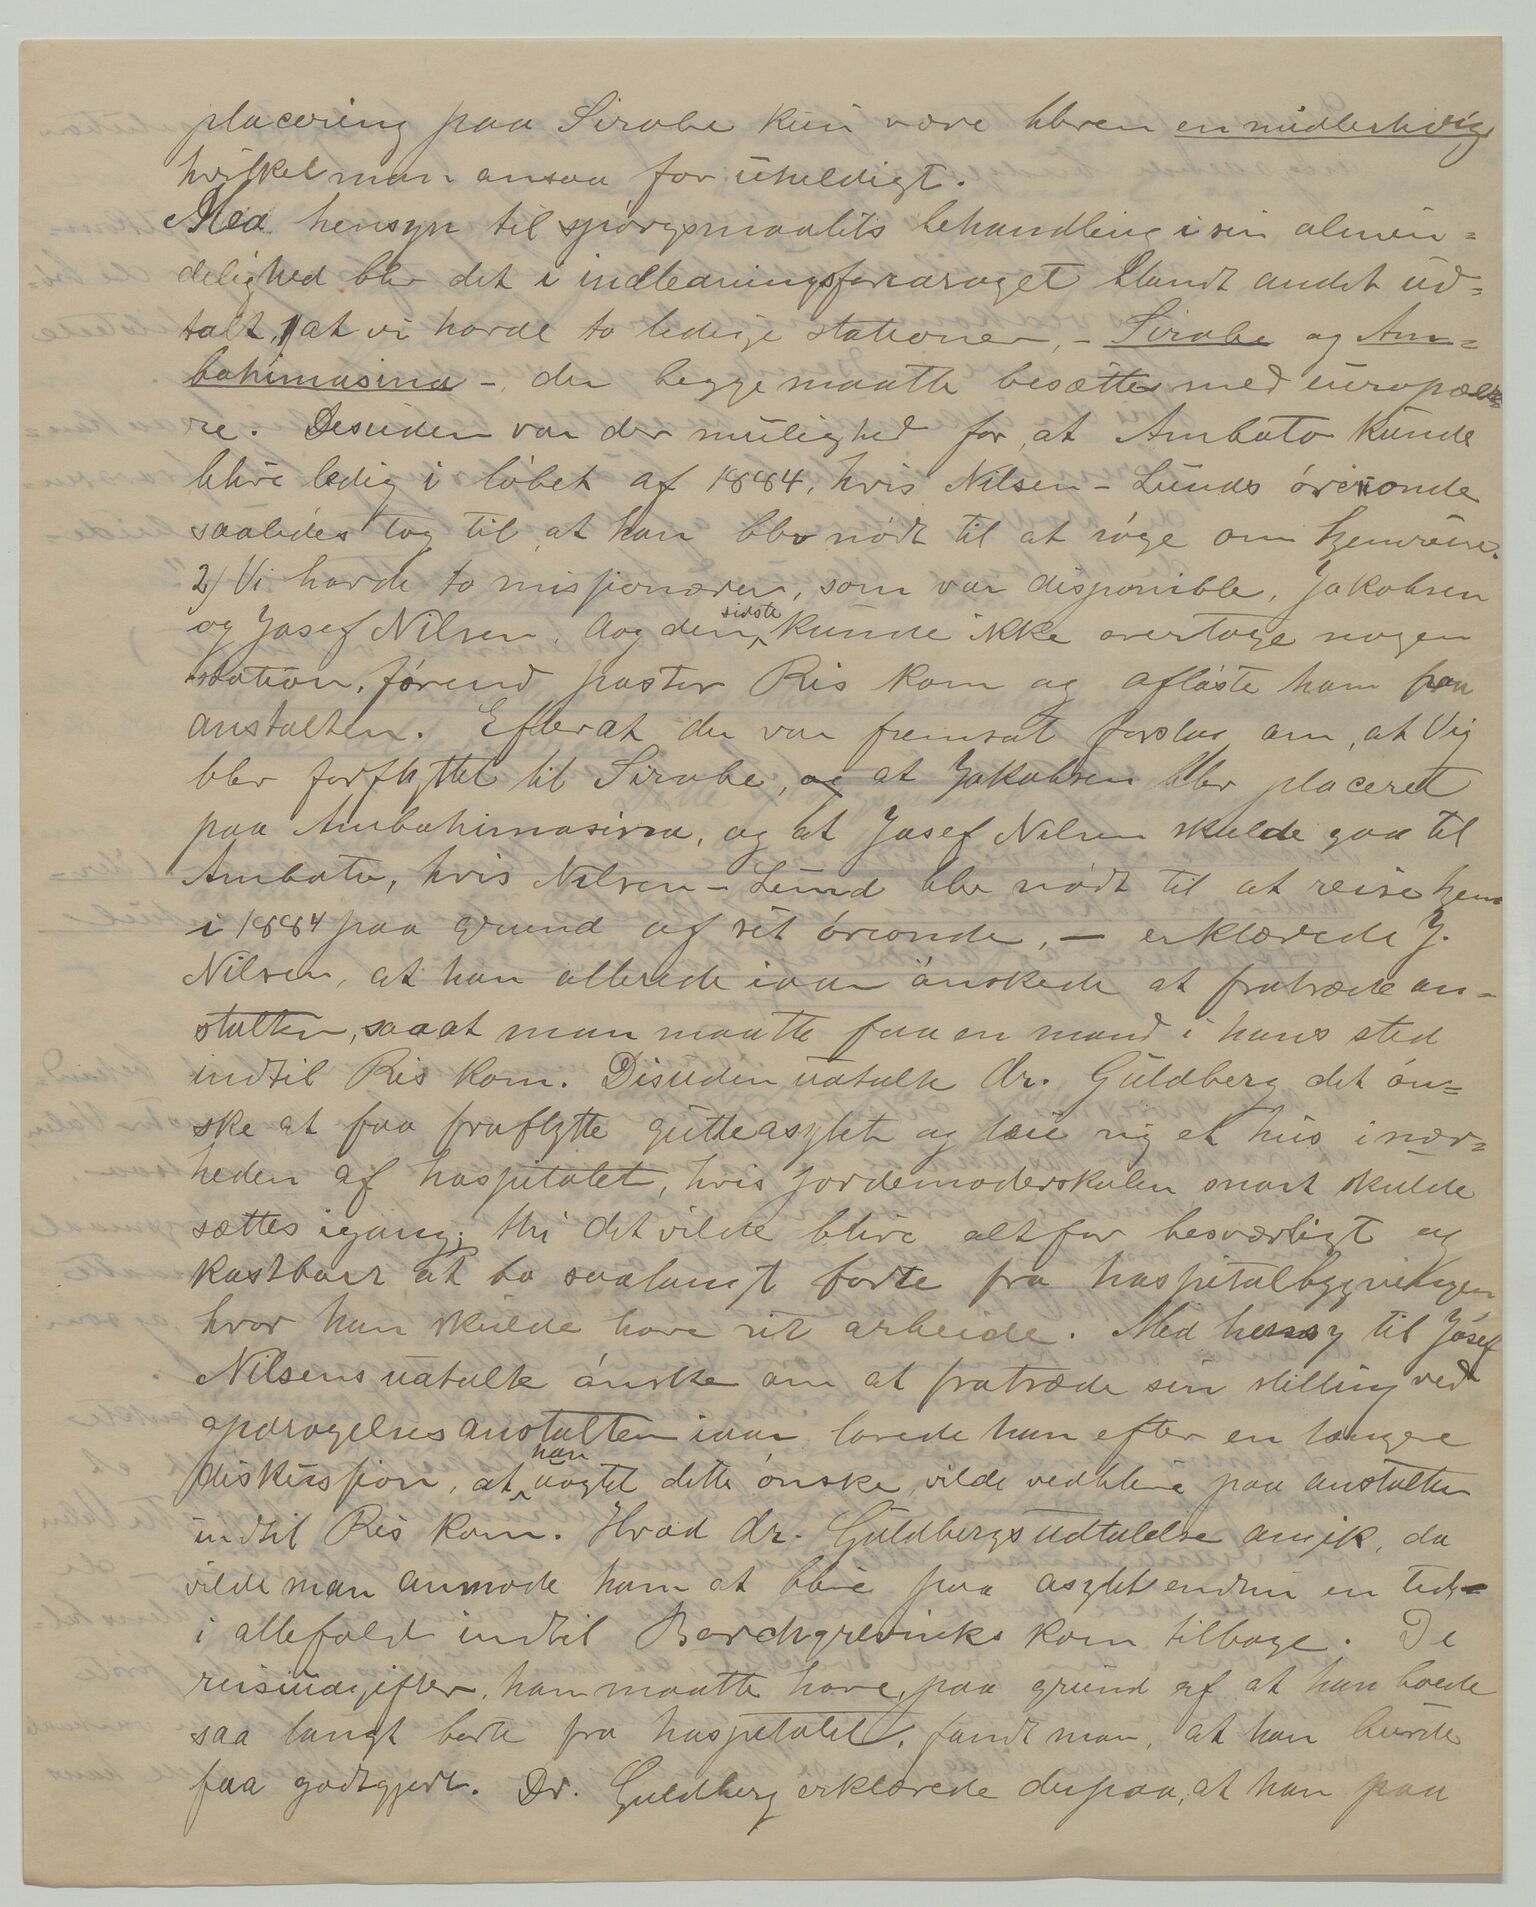 placering paa Sirabe kun være bleven en midlertidig
hvilket man ansaa for uheldigt.
Med hensyn til spörgsmaalets behandling i sin almin=
delighed blev det i indledningsforedraget blandt andet ud=
talt, 1) at vi havde to ledige stationer, - Sirabe og Am=
bohimasina -, der begge maatte besættes med europæe=
re. Desuden var der mulighed for, at Ambato kunde
blive ledig i löbet af 1884, hvis Nilsen-Lunds öieonde
saaledes tog til, at han blev nödt til at söge om hjemreise.
2) Vi havde to missionærer, som var disponible, Jakobsen
og Josef Nilsen. Dog den sidste kunde ikke overtage nogen
station, förend pastor Ris kom og aflöste ham paa
anstalten. Efterat der var fremsat forslag om, at Vig
blev forflyttet til Sirabe, og at Jakobsen blev placeret
paa Ambohimasina, og at Josef Nilsen skulde gaa til
Ambato, hvis Nilsen-Lund blev nödt til at reise hjem
i 1884 paa grund af sit öieonde, - erklærede J.
Nilsen, at han allerede iaar önskede at fratræde an=
stalten, saa at man maatte faa en mand i hans sted
indtil Ris kom. Desuden udtalte dr. Guldberg det ön=
ske at faa fraflytte gutteasylet og leie sig et hus i nær=
heden af hospitalet, hvis jordemoderskolen snart skulde
sættes igang; thi det vilde blive altfor besværligt og
kostbart at bo saalangt borte fra hospitalbygningen
hvor han skulde have sit arbeide. Med hensy til Josef
Nilsens udtalte önske om at fratræde sin stilling ved
opdragelsesanstalten iaar lovede han efter en længere
diskussjon, at han uagtet dette önske vilde vedblive paa anstalten
indtil Ris kom. Hvad dr. Guldbergs udtalelse angik, da
vilde man anmode ham at blive paa asylet endnu en tid -
i allefald indtil Borchgrevinks kom tilbage. De
reiseudgifter, han maatte have, paa grund af at han boede
saa langt borte fra hospitalet, fandt man, at han burde
faa godtgjort. Dr. Guldberg erklærede derpaa, at han paa